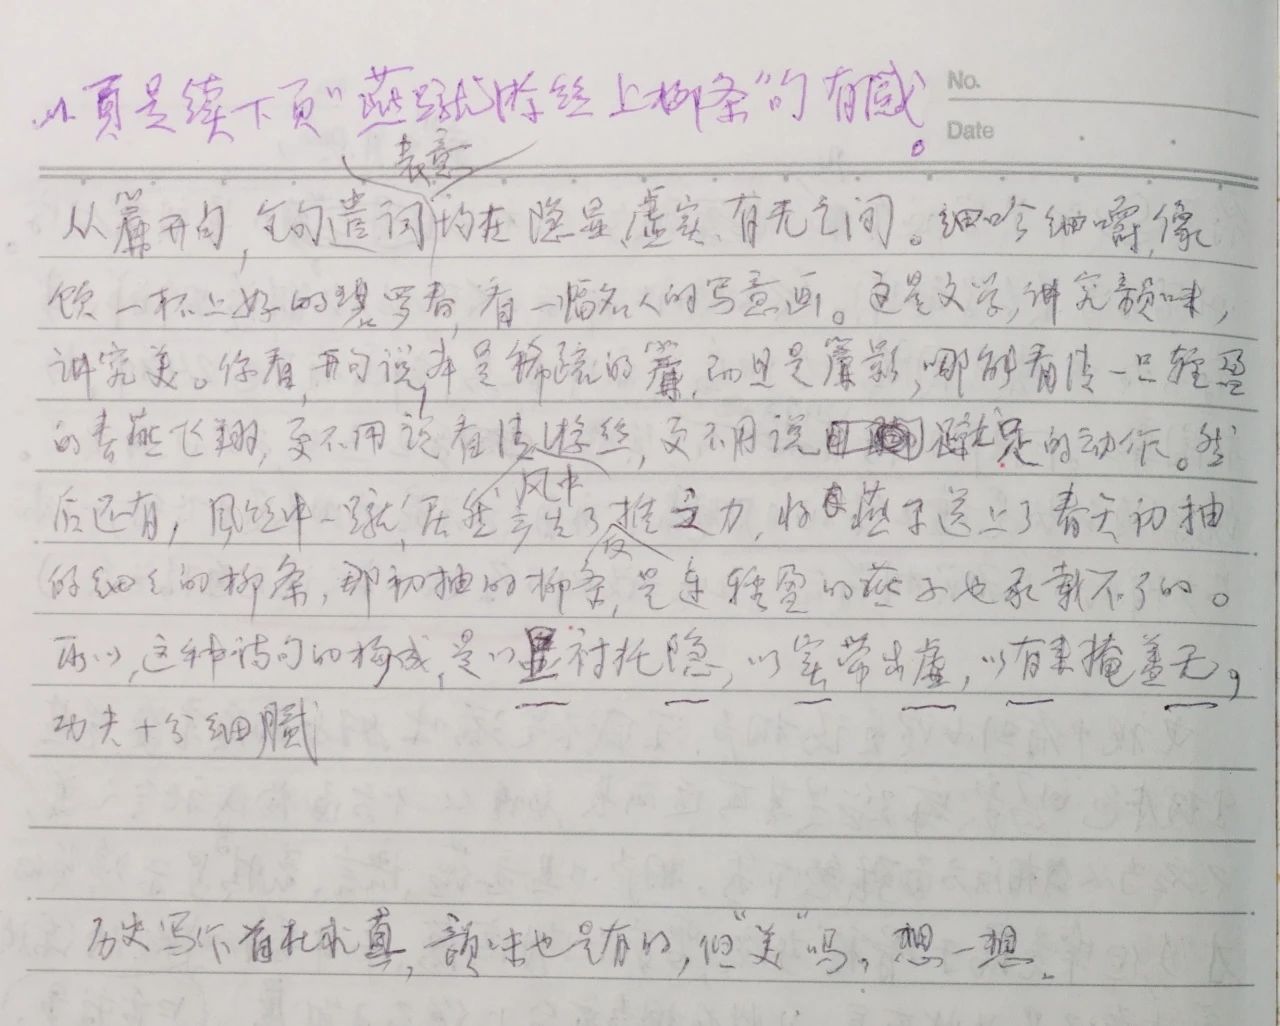 此頁是续下页"燕蹴游丝上柳条"的有感。
No.
Date
表意
从簾开句,全句遣词均在隐显、虚实、有无之间。细吟细嚼,像
饮一杯上好的碧罗春,看一幅名人的写意画。这是文学,讲究韻味,
讲究美。你看,开句说,本是稀疏的簾,而且是簾影,哪能看清一只轻盈
的春燕飞翔,更不用说看清游丝,更不用说蹴的动作。然
风中
后还有,風丝中一蹴,居然产生了推力,将燕子送上了春天初抽
反
的细细的柳条,那初抽的柳条,是连轻盈的燕子也承载不了的。
所以,这种诗句的构成,是以显衬托隐,以实带出虚,以有来掩盖无,
功夫十分细腻
历史写作首在求真,韻味也是有的,但"美"吗。想一想。